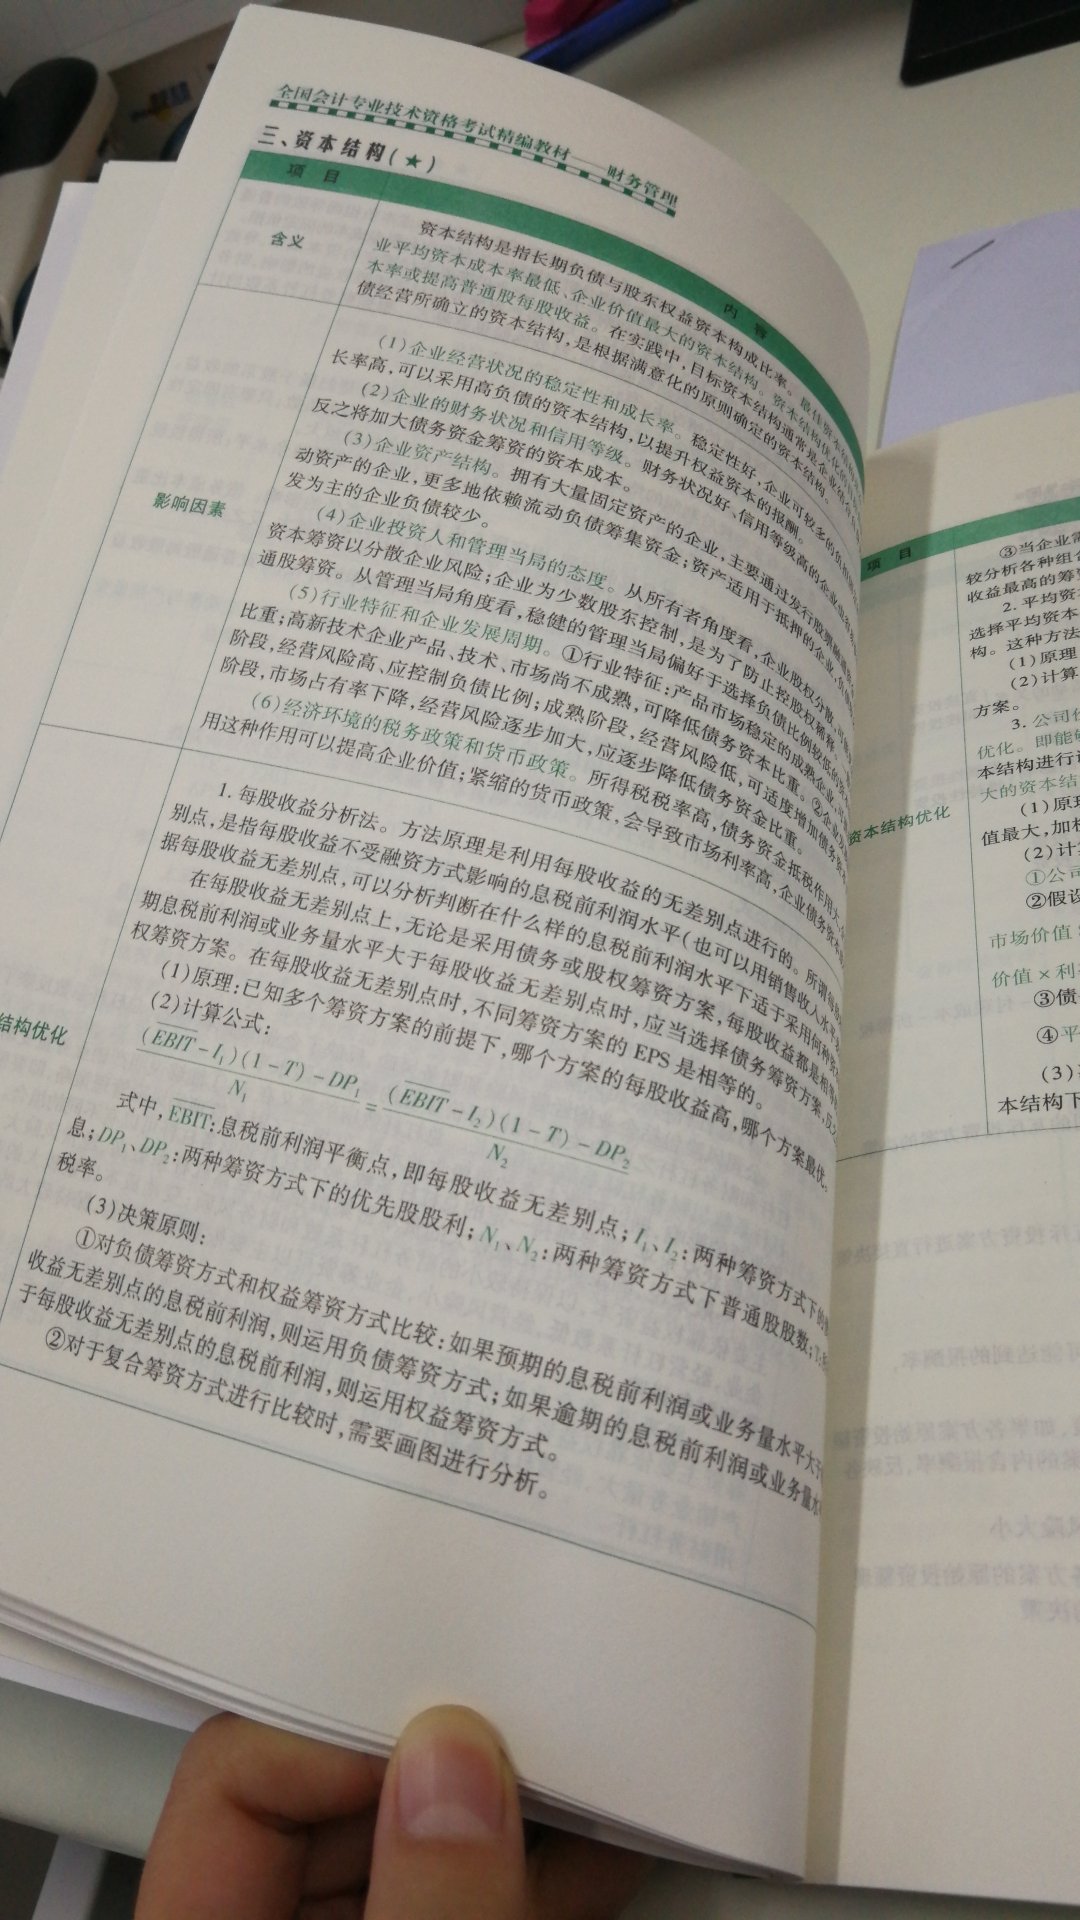 全国会计专业技术资格考试精编教材——财务管理
三、资本结构(★)
项 目
内 容
含义
资本结构是指长期负债与股东权益资本构成比率。最佳资本结构
业平均资本成本率最低、企业价值最大的资本结构。资本结构优化的
本率或提高普通股每股收益。在实践中,目标资本结构通常是企业
债经营所确立的资本结构,是根据满意化的原则确定的资本结构。
影响因素
(1)企业经营状况的稳定性和成长率。稳定性好,企业可较多的负
长率高,可以采用高负债的资本结构,以提升权益资本的报酬。
(2)企业的财务状况和信用等级。财务状况好、信用等级高的企业
反之将加大债务资金筹资的资本成本。
(3)企业资产结构。拥有大量固定资产的企业,主要通过发行股票融通
动资产的企业,更多地依赖流动负债筹集资金;资产适用于抵押的企业,负
发为主的企业负债较少。
(4)企业投资人和管理当局的态度。从所有者角度看,企业股权分散,可能
资本筹资以分散企业风险;企业为少数股东控制,是为了防止控股权稀释,
通股筹资。从管理当局角度看,稳健的管理当局偏好于选择负债比例较低的资本
(5)行业特征和企业发展周期。①行业特征:产品市场稳定的成熟企业,
比重;高新技术企业产品、技术、市场尚不成熟,可降低债务资本比重。②企业
阶段,经营风险高、应控制负债比例;成熟阶段,经营风险低,可适度增加债务资
阶段,市场占有率下降,经营风险逐步加大,应逐步降低债务资金比重。
(6)经济环境的税务政策和货币政策。所得税税率高,债务资金抵税作用大,
用这种作用可以提高企业价值;紧缩的货币政策,会导致市场利率高,企业债务资本
结构优化
1. 每股收益分析法。方法原理是利用每股收益的无差别点进行的。所谓每股
别点,是指每股收益不受融资方式影响的息税前利润水平(也可以用销售收入水平
据每股收益无差别点,可以分析判断在什么样的息税前利润水平下适于采用何种资
在每股收益无差别点上,无论是采用债务或股权筹资方案,每股收益都是相等
期息税前利润或业务量水平大于每股收益无差别点时,应当选择债务筹资方案,反
权筹资方案。在每股收益无差别点时,不同筹资方案的 EPS 是相等的。
(1)原理:已知多个筹资方案的前提下,哪个方案的每股收益高,哪个方案最优。
(2)计算公式:
(EBIT-I₁)(1-T)-DP₁/N₁=(EBIT-I₂)(1-T)-DP₂/N₂
式中,EBIT:息税前利润平衡点,即每股收益无差别点;I₁、I₂:两种筹资方式下的
息;DP₁、DP₂:两种筹资方式下的优先股股利;N₁、N₂:两种筹资方式下普通股股数;T:
税率。
(3)决策原则:
①对负债筹资方式和权益筹资方式比较:如果预期的息税前利润或业务量水平大于
收益无差别点的息税前利润,则运用负债筹资方式;如果逾期的息税前利润或业务量水
于每股收益无差别点的息税前利润,则运用权益筹资方式。
②对于复合筹资方式进行比较时,需要画图进行分析。
项 目
资本结构优化
③当企业需
较分析各种组合
收益最高的筹
2. 平均资
选择平均资本
构。这种方法
(1)原理
(2)计算
方案。
3. 公司价
优化。即能够
本结构进行
大的资本结
(1)原理
值最大,加权
(2)计
①公司
②假设
市场价值
价值×利
③债
④平
(3)
本结构下